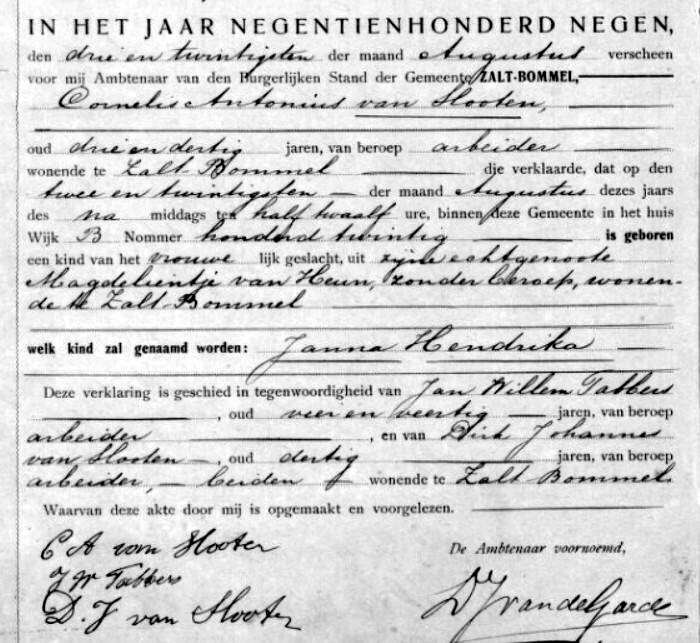 IN HET JAAR NEGENTIENHONDERD NEGEN,
den drie en twintigsten der maand Augustus verscheen
voor mij Ambtenaar van den Burgerlijken Stand der Gemeente ZALT-BOMMEL,
Cornelis Antonius van Slooten,
oud drie en dertig jaren, van beroep arbeider
wonende te Zalt-Bommel die verklaarde, dat op den
twee en twintigsten — der maand Augustus dezes jaars
des na middags ten half twaalf ure, binnen deze Gemeente in het huis
Wijk B Nommer honderd twintig is geboren
een kind van het vrouwe lijk geslacht, uit zijne echtgenoote
Magdelientje van Heun, zonder beroep, wonen-
de te Zalt-Bommel
welk kind zal genaamd worden: Janna Hendrika
Deze verklaring is geschied in tegenwoordigheid van Jan Willem Tabbers
, oud vier en veertig — jaren, van beroep
arbeider , en van Dirk Johannes
van Slooten —, oud dertig jaren, van beroep
arbeider, — beiden wonende te Zalt Bommel.
Waarvan deze akte door mij is opgemaakt en voorgelezen.
C A van Slooten
De Ambtenaar voornoemd,
J W Tabbers
D. J van Slooten
DJvandeGarde